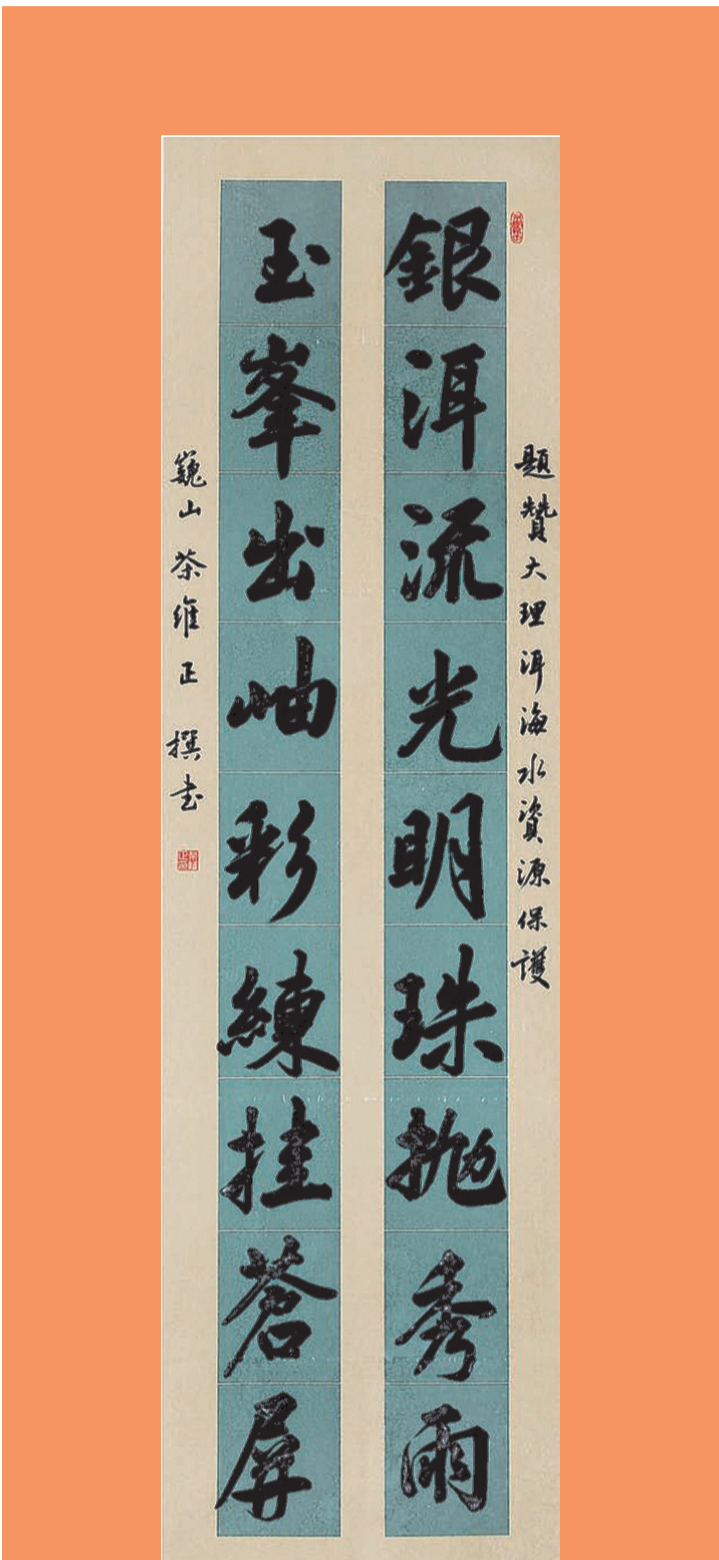 題贊大理洱海水資源保護
銀洱流光明珠拋秀雨
玉峯出岫彩練挂蒼屏
巍山 茶維正 撰书